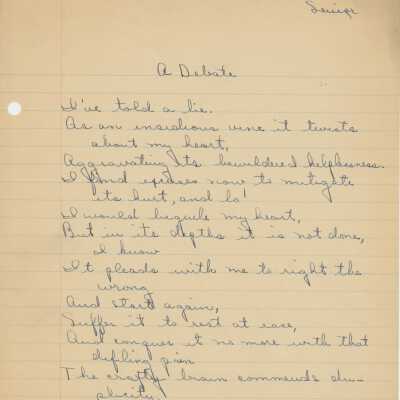 Senior
A Debate
I've told a lie.
As an insidious vine it twists
about my heart,
Aggravating its bewildered helplessness.
I find excuses now to mitigate
its hurt, and lo!
I would beguile my heart,
But in its depths it is not done,
I know
It pleads with me to right the
wrong
And start again,
Suffer it to rest at ease,
And conquer it no more with that
defiling pain
The crafty brain commends du-
plicity,